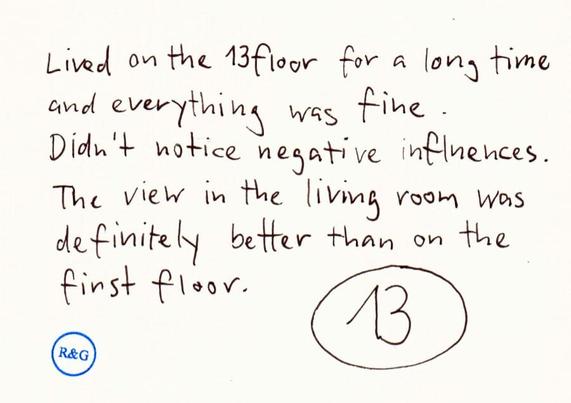 Lived on the 13floor for a long time
and everything was fine.
Didn't notice negative influences.
The view in the living room was
definitely better than on the
first floor.
13
R&G